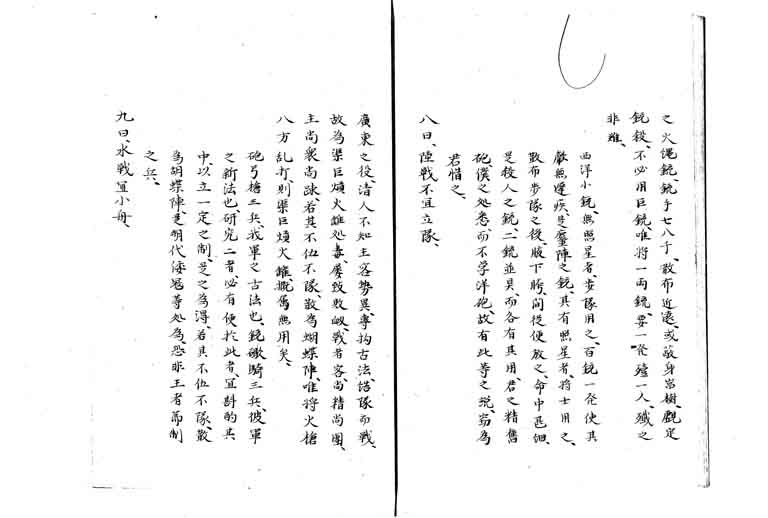 之火繩銃、銃手七八千、散布近遠、或蔽身岩樹、覷定
銃殺、不必用巨銃、唯將一兩銃、要一発殪一人、殲之
非難、
西洋小銃、無照星者、歩隊用之、百銃一発、使其
無遲疾、是鏖陣之銃、具有照星者、將士用之、
散布歩隊之後、腋下胯間従便放之、命中巨細、
是殺人之銃、二銃並具、而各有其用、君之精舊
砲、僕之処悉、而不学洋砲、故有此等之説、窃為
君惜之、
八曰、陸戰不宜立隊、
廣東之役、清人不知主客勢異、專拘古法結隊而戰、
故為渠巨熕火雖処毒、屡致敗衂、戰者客尚精尚團、
主尚衆尚疎、若其不伍不隊、散為蝴蝶陣、唯將火槍
八方乱打、則渠巨熕火罐、概属無用矣、
砲弓槍三兵、我軍之古法也、銃礮騎三兵、彼軍
之新法也、研究二者、必有便於此者、宜斟酌其
中、以立一定之制、是之為得、若其不伍不隊、散
為胡蝶陣、是明代倭冦等処為、恐非王者節制
之兵、
九曰、水戰宜小舟、